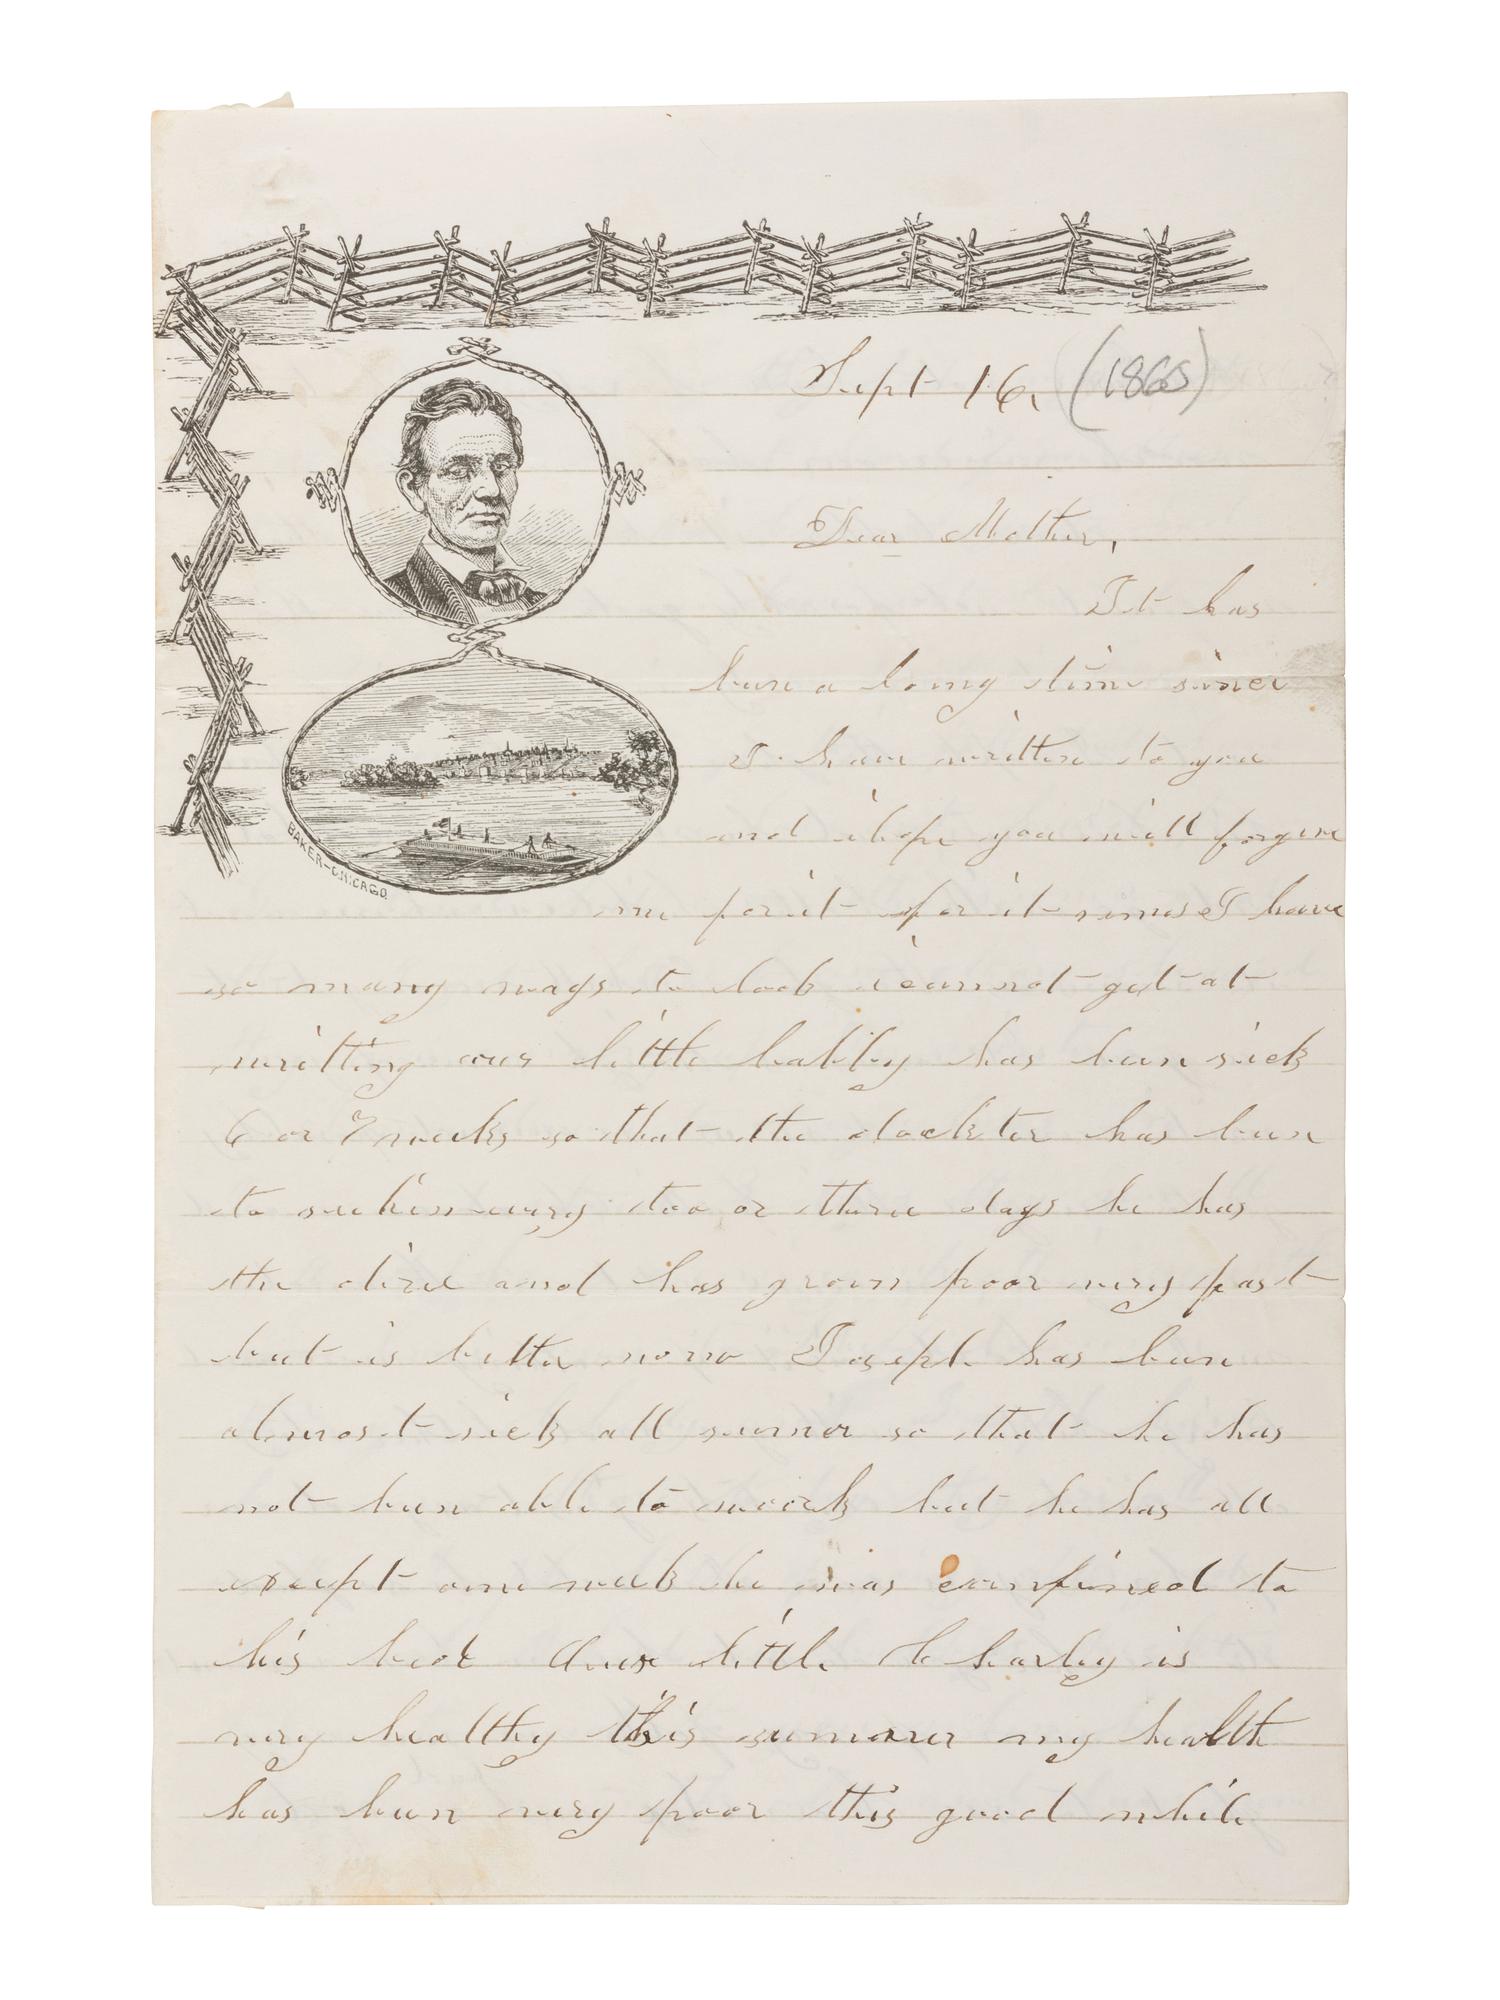 Sept 16, (1865)
Dear Mother,
It has
bun a long time since
I have written to you
and i hope you will forgive
me for it for it semes I have
so many ways to look i cannot get at
writting our little babby has bun sick
6 or 7 weeks so that the dockter has bun
to see him evry too or three days he has
the dire and has grown poor very fast
but is better now Joseph has bun
almost sick all sumer so that he has
not bun able to work but he has all
except one week he was confined to
his bed Our little Charley is
very healthy this summer my health
has bun very poor this good while
BAKER-CHICAGO